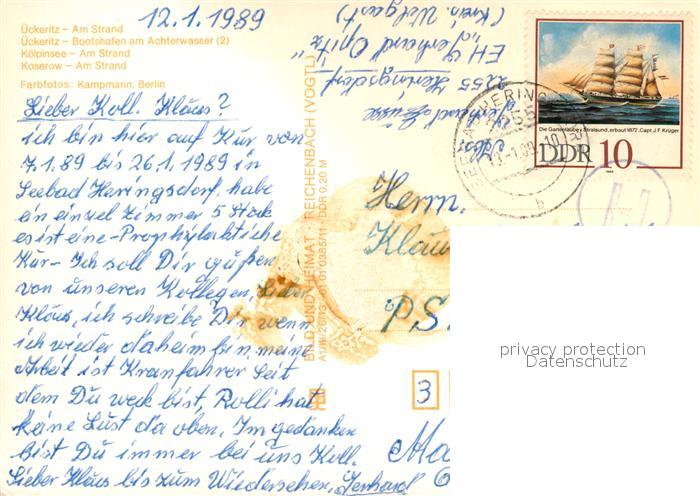 12.1.1989
Ückeritz – Am Strand
Ückeritz – Bootshafen am Achterwasser (2)
Kölpinsee – Am Strand
Koserow – Am Strand
Farbfotos: Kampmann, Berlin
Lieber Koll. Klaus?
ich bin hier auf Kur von
7.1.89 bis 26.1.1989 in
Seebad Heringsdorf, habe
ein einzel zimmer 5 Stock
es ist eine Prophylaktiche
Kur- Ich soll Dir grüßen
von unseren Kollegen,
Klaus, ich schreibe Dir wenn
ich wieder daheim bin, meine
Arbeit ist Kranfahrer seit
dem Du weck bist, Rolli hat
keine Lust da oben, Im gedanken
bist Du immer bei uns Koll.
Lieber Klaus bis zum Wiedersehen, Gerhard
BILD UND HEIMAT REICHENBACH (VOGTL)
DDR 0,20 M
Gerhard
2255 Heringsdorf
EH „Gerhard Opitz"
(Kreis. Wolgast)
Die Gartenlaube v. Stralsund, erbaut 1872, Capt. J. F. Krüger
DDR 10
Herrn
Klaus
PS
3
Ma
privacy protection
Datenschutz